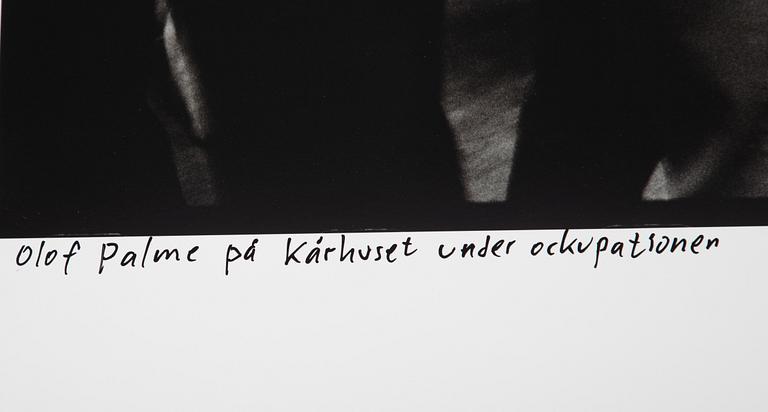 Olof Palme på Kårhuset under ockupationen